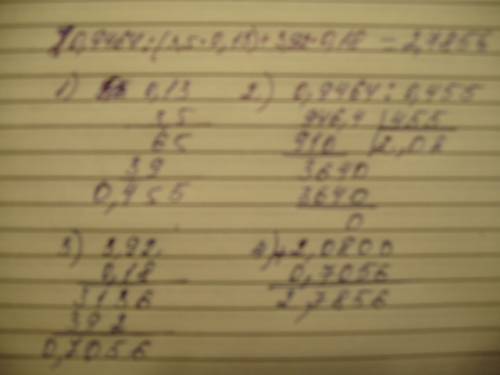 0,9464:(3,5·0,13)+3,92·0,18 = 2,7856
1) 0,13
3,5
65
39
0,455
2) 0,9464:0,455
946,4 455
910 2,08
3640
3640
0
3) 3,92
0,18
3136
392
0,7056
4) +2,0800
0,7056
2,7856